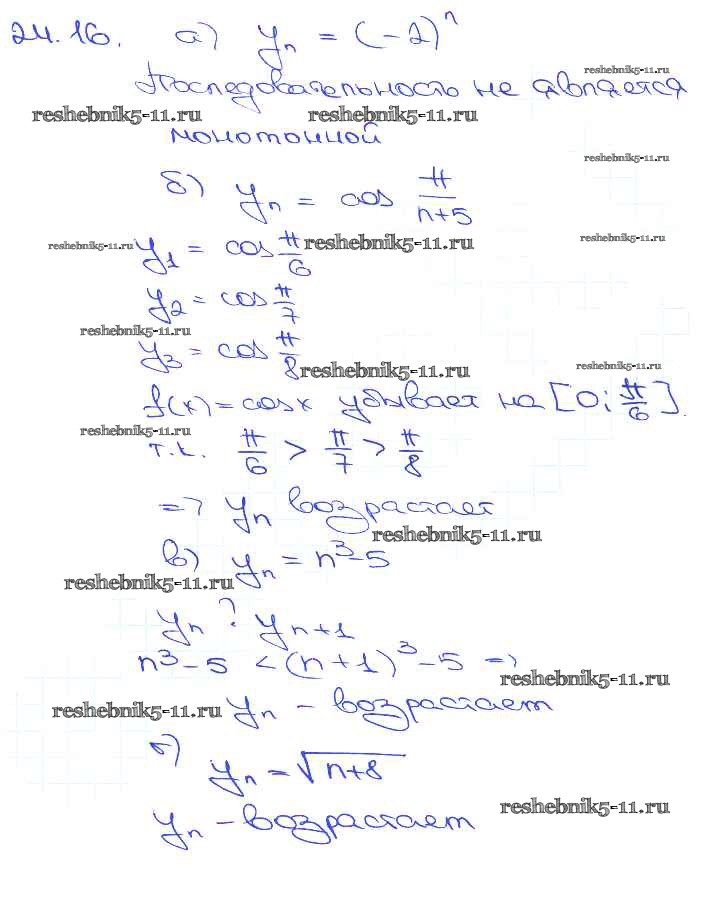 24.16. а) yₙ = (-2)ⁿ
reshebnik5-11.ru
Последовательность не является
reshebnik5-11.ru reshebnik5-11.ru
монотонной
reshebnik5-11.ru
б) yₙ = cos π/(n+5)
reshebnik5-11.ru y₁ = cos π/6 reshebnik5-11.ru reshebnik5-11.ru
y₂ = cos π/7
reshebnik5-11.ru
y₃ = cos π/8 reshebnik5-11.ru reshebnik5-11.ru
f(x) = cosx убывает на [0; π/6].
reshebnik5-11.ru
т.к. π/6 > π/7 > π/8
=> yₙ возрастает
reshebnik5-11.ru
в) yₙ = n³-5
reshebnik5-11.ru
yₙ ? yₙ₊₁
n³-5 < (n+1)³-5 =>
reshebnik5-11.ru
reshebnik5-11.ru yₙ - возрастает
г) yₙ = √(n+8)
reshebnik5-11.ru
yₙ - возрастает